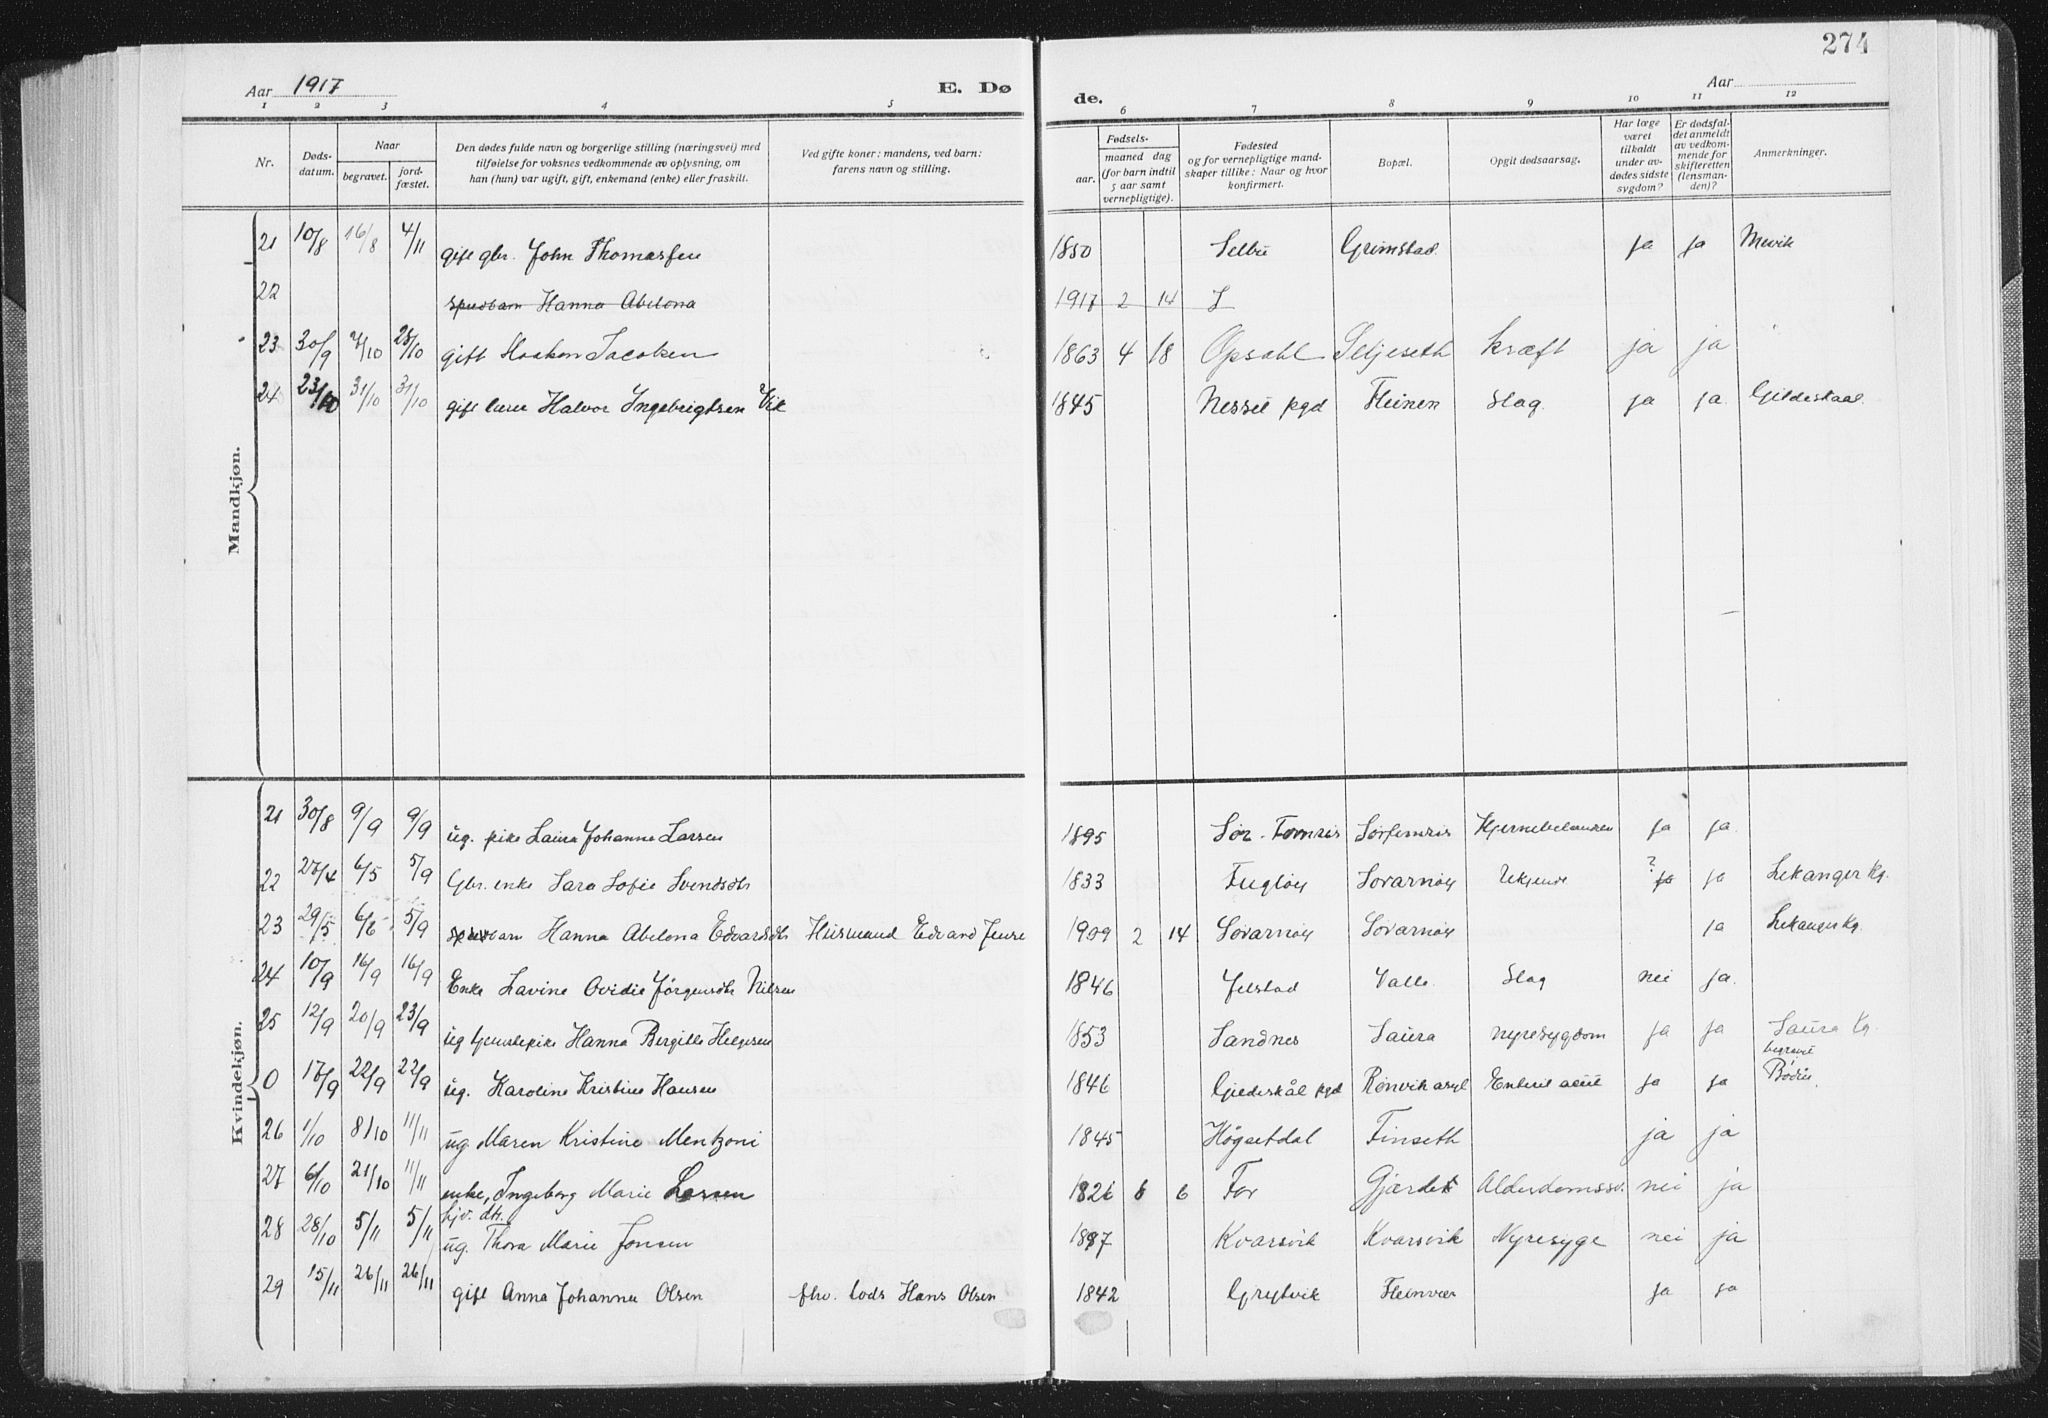 274
Aar 1917 E. Dø de. Aar
1 2 3 4 5 6 7 8 9 10 11 12
Nr. Døds-datum. Naar begravet. jord-fæstet. Den dødes fulde navn og borgerlige stilling (næringsvei) med tilføielse for voksnes vedkommende av oplysning, om han (hun) var ugift, gift, enkemand (enke) eller fraskilt. Ved gifte koner: mandens, ved barn: farens navn og stilling. Fødsels- aar. maaned dag (for barn indtil 5 aar samt vernepligtige). Fødested og for vernepligtige mand-skaper tillike: Naar og hvor konfirmert. Bopæl. Opgit dødsaarsag. Har læge været tilkaldt under av-dødes sidste sygdom? Er dødsfal-det anmeldt av vedkom-mende for skifteretten (lensman-den)? Anmerkninger.
Mandkjøn.
21 10/8 16/8 4/11 gift gbr. John Thomassen 1850 Selbu Grimstad ja ja Mevik
22 spedbarn Hanna Abelona 1917 2 14 S
23 30/9 7/10 25/10 gift Haakon Jacobsen 1863 4 18 Opsahl Seljeseth kræft ja ja
24 23/10 31/10 31/10 gift lærer Halvor Ingebrigtsen Vik 1845 Nesset pgd Fleinen Slag. ja ja Gildeskaal
Kvindekjøn.
21 30/8 9/9 9/9 ug. pike Laura Johanna Larsen 1895 Sør-Fornes Sørfornes ja ja
22 27/4 6/5 5/9 Gbr. enke Sara Sofie Svendsdtr 1833 Fugløy Sørarnøy ? ja ja Lekanger Kg.
23 29/5 6/6 5/9 spedbarn Hanna Abelona Edvardsdtr Husmand Edvard 1909 2 14 Sørarnøy Sørarnøy ja Lekanger Kg.
24 10/9 16/9 16/9 Enke Lavine Ovidie Jørgensdtr Nilsen 1846 Jelstad Valle Slag nei ja
25 12/9 20/9 23/9 ug tjenestepike Hanna Bergitte Helgesen 1853 Sandnes Saura nyresygdom ja ja Saura Kg.
0 17/9 22/9 22/9 ug. Karoline Kristine Hansen 1846 Gildeskål pgd Rønvik asyl ja ja begravet Bodø
26 1/10 8/10 11/11 ug Maren Kristine Mentzoni 1845 Høgsetdal Finseth ja ja
27 6/10 21/10 11/11 enke, Ingeborg Marie Larsen 1826 6 6 For Gjærdet Alderdomssv. nei ja
28 28/10 5/11 5/11 hjv. dtr. ug. Thora Marie Jonsen 1887 Kvarsvik Kvarsvik Nyresyge nei ja
29 15/11 26/11 26/11 gift Anna Johanna Olsen fhv. lods Hans Olsen 1842 Grytvik Fleinvær ja ja